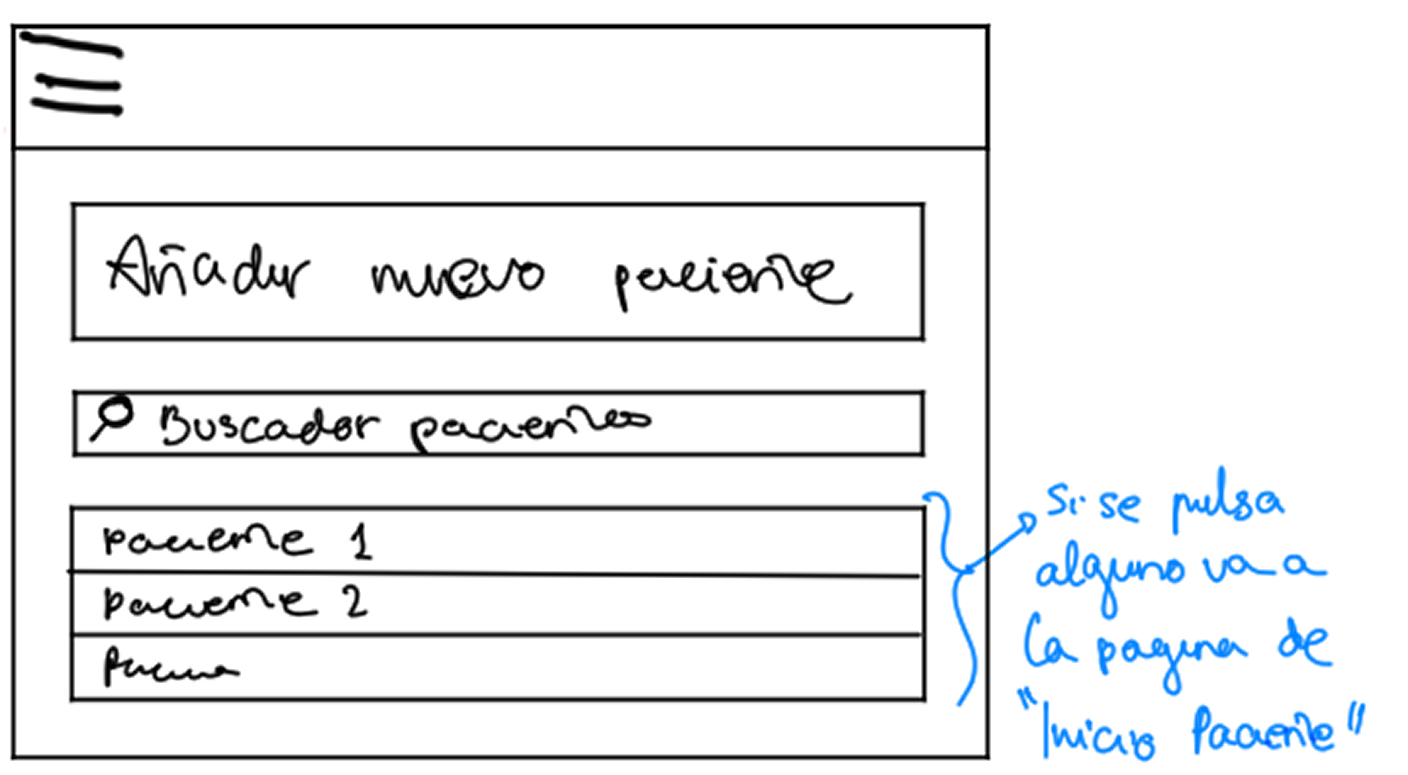 Añadir nuevo paciente
Buscador pacientes
paciente 1
paciente 2
Si se pulsa
alguno va a
la pagina de
"Inicio Paciente"